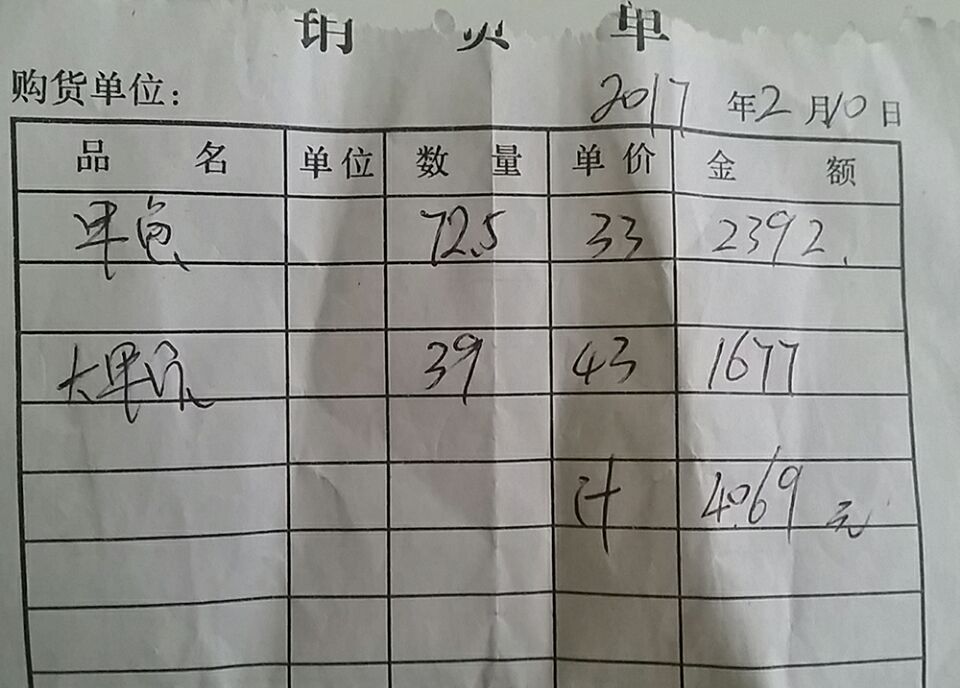 销货单
购货单位: 2017年2月10日
品名 单位 数量 单价 金额
甲鱼 72.5 33 2392.
大甲鱼 39 43 1677
计 4069元